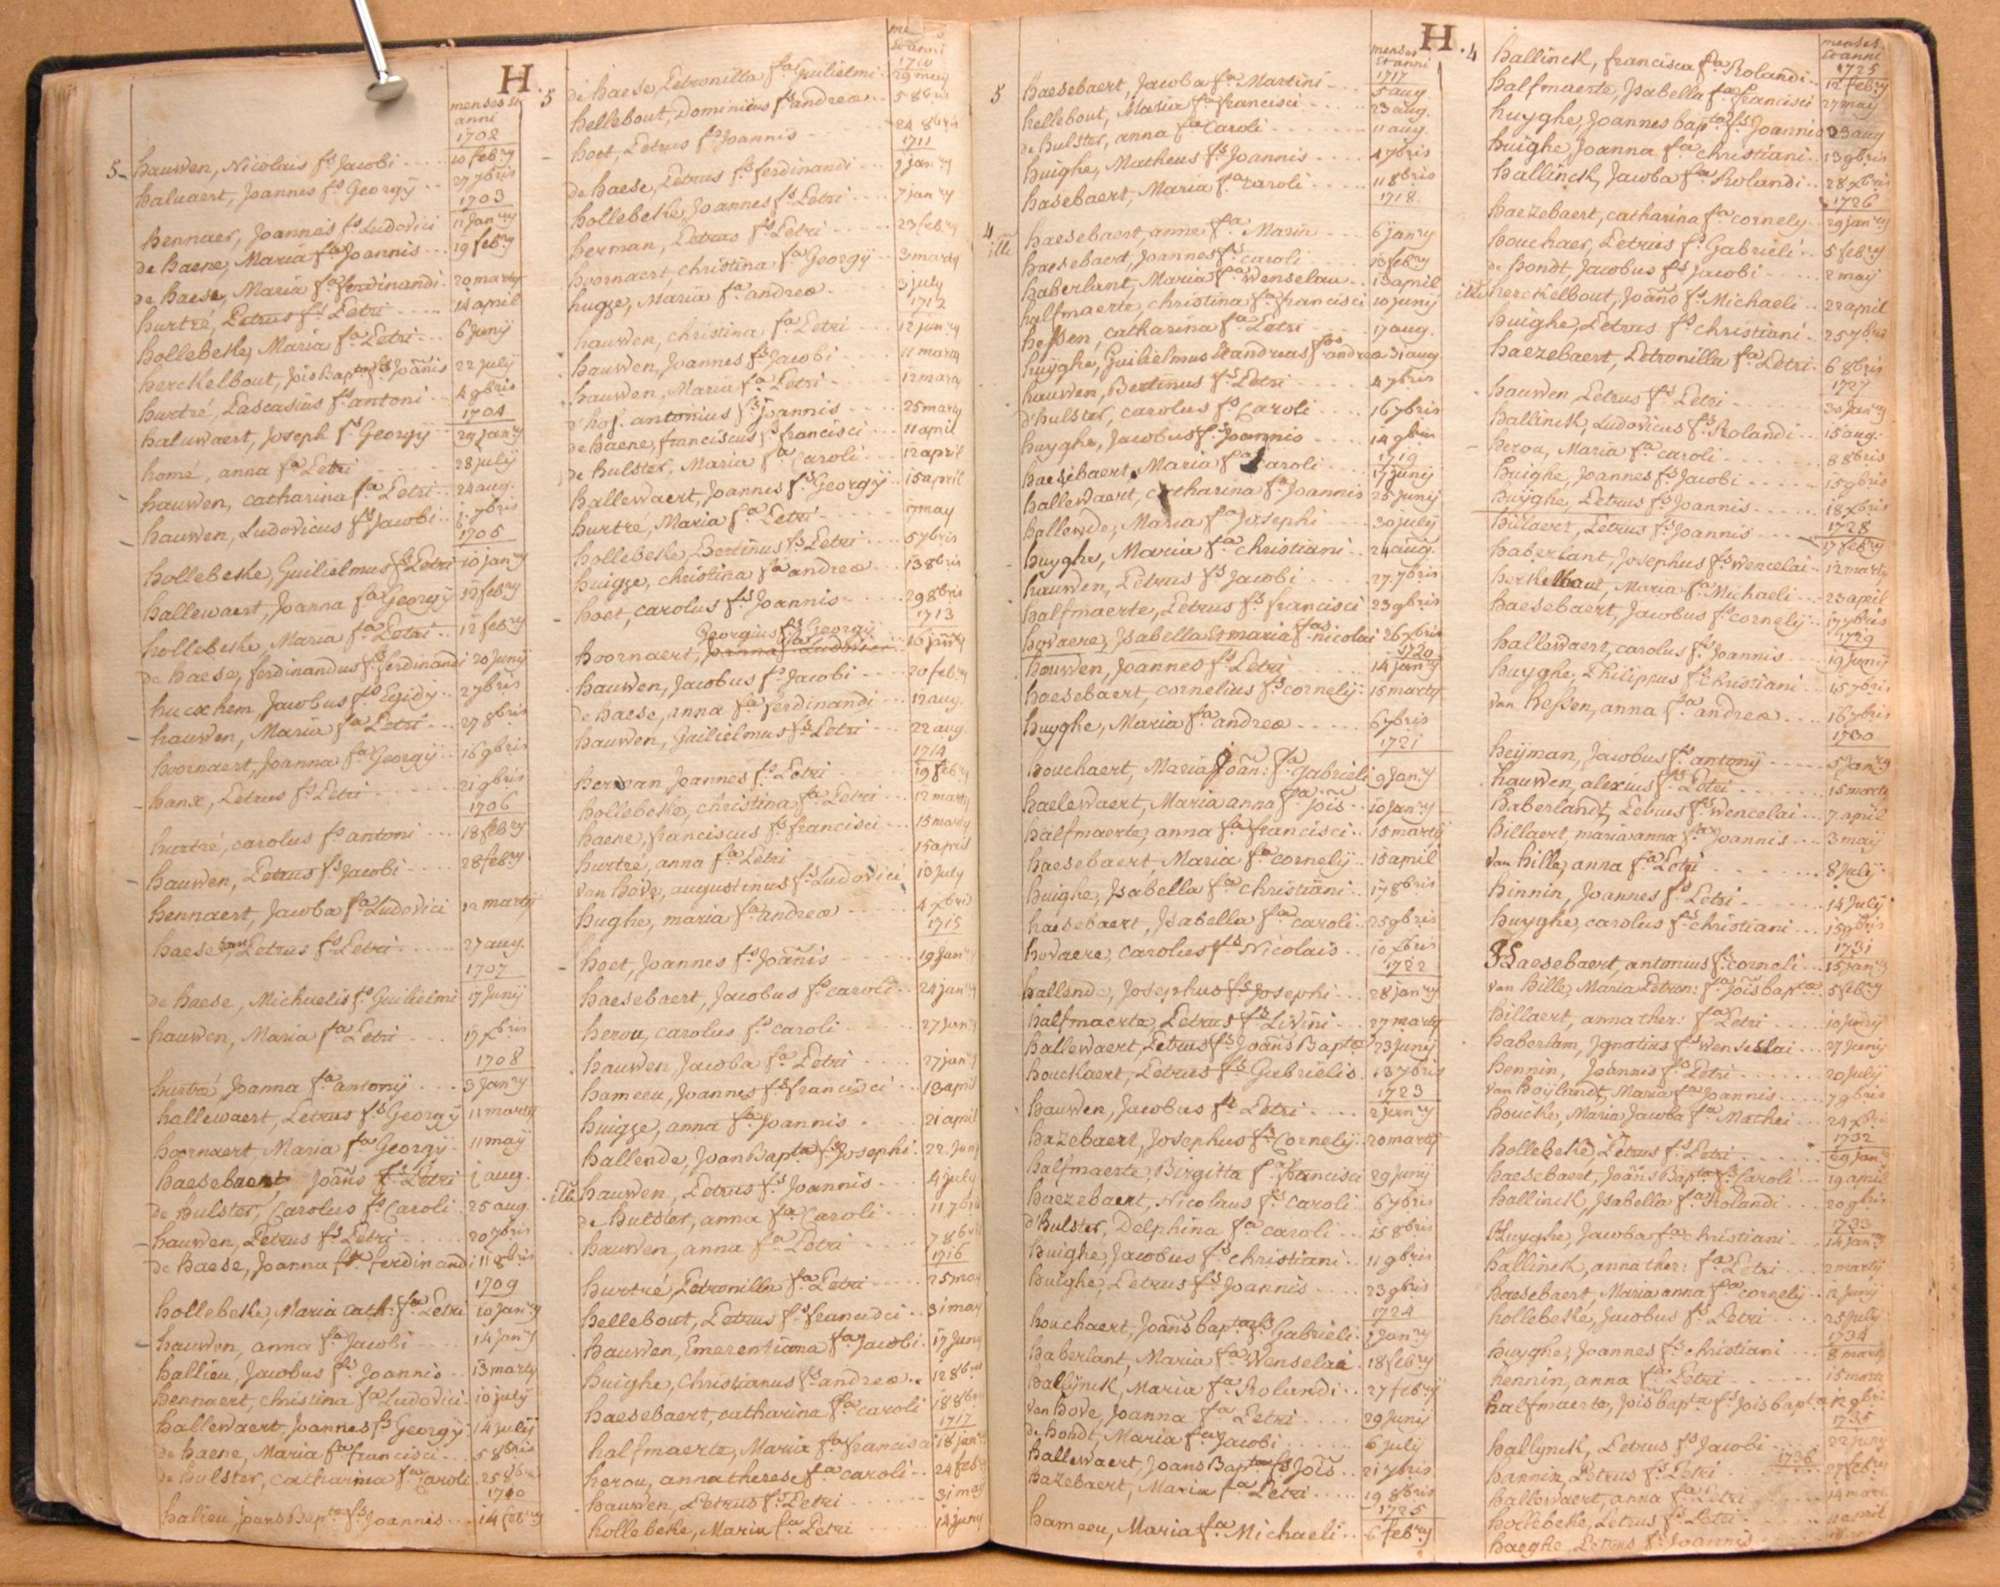 H.
menses et
anni
1702
5 hauwen, Nicolais fs Jacobi 10 febry
haluaert, Joannes fs Georgÿ 27 7bris
1703
hennaer, Joannes fs Ludovici 11 Janry
de haene, Maria fa Joannis 19 febry
de haese, Maria fa ferdinandi 20 marty
hurtré, Petrus fs Petri 14 april
hollebeke, Maria fa Petri 6 Junÿ
herckelbout, Jois bapta fs Joannis 22 julÿ
hurtré, Pascasius fs antoni 4 9bris
1704
haluwaert, Joseph fs Georgÿ 29 Janry
homé, anna fa Petri 28 julÿ
hauwen, catharina fa Petri 24 aug.
hauwen, Ludovicus fs Jacobi 6 7bris
1705
hollebeke, Guilielmus fs Petri 10 janry
hallewaert, Joanna fa Georgÿ 12 febry
hollebeke, Maria fa Petri 12 febry
de haese, ferdinandus fs ferdinandi 20 junÿ
hucxhem, Jacobus fs Egidÿ 2 7bris
hauwen, Maria fa Petri 27 8bris
hoornaert, Joanna fa Georgÿ 16 9bris
hanx, Petrus fs Petri 21 9bris
1706
hurtré, carolus fs antoni 18 febry
hauwen, Petrus fs Jacobi 28 febry
hennaert, Jacoba fa Ludovici 12 martÿ
haese, Petrus fs Petri 27 aug.
1707
de haese, Michaelis fs Guilielmi 17 Junÿ
hauwen, Maria fa Petri 17 xbris
1708
hurtré Joanna fa antonÿ 3 Janry
hallewaert, Petrus fs Georgÿ 11 marty
hoornaert Maria fa Georgÿ 11 maÿ
haesebaert Joans fs Petri 1 aug.
de hulster, Carolus fs Caroli 25 aug.
hauwen, Petrus fs Petri 20 7bris
de haese, Joanna fa ferdinandi 11 8bris
1709
hollebeke, Maria cath: fa Petri 10 Janry
hauwen, anna fa Jacobi 14 Janry
hallieu, Jacobus fs Joannis 13 marty
hennaert, christina fa Ludovici 10 julÿ
hallewaert, Joannes fs Georgÿ 14 julÿ
de haene, Maria fa francisci 5 8bris
de hulster, catharina fa Caroli 25 8bris
1710
halieu Joans Bapta fs Joannis 14 febry
et anni
1710
5 de haese, Petronilla fa Guilielmi 29 meÿ
hellebout, Dominicus fs andreæ 5 8bris
hoet, Petrus fs Joannis 24 8bris
1711
de haese, Petrus fs ferdinandi 7 janry
hollebeke, Joannes fs Petri 7 janry
herman, Petrus fs Petri 23 febry
hoornaert, christina fa Georgÿ 3 marty
hugze, Maria fa andreæ 3 july
1712
hauwen, christina fa Petri 12 janry
hauwen, Joannes fs Jacobi 11 marty
hauwen, Maria fa Petri 12 marty
d'hof. antonius fs Joannis 25 marty
de haene, franciscus fs francisci 11 april
de hulster, Maria fa Caroli 12 april
hallewaert, Joannes fs Georgÿ 15 april
hurtré, Maria fa Petri 7 may
hollebeke, Bertinus fs Petri 5 7bris
huigze, christina fa andreæ 13 8bris
hoet, carolus fs Joannis 29 8bris
1713
Georgius fs Georgÿ
hoornaert, 16 janry
hauwen, Jacobus fs Jacobi 20 febry
de haese, anna fa ferdinandi 12 aug.
hauwen, Guilielmus fs Petri 22 aug.
1714
herman Joannes fs Petri 19 febry
hollebeke, christina fa Petri 12 marty
haene, franciscus fs francisci 15 marty
hurtré, anna fa Petri 15 april
van hove, augustinus fs Ludovici 10 july
hughe, maria fa andreæ 4 xbris
1715
hoet, Joannes fs Joannis 19 Janry
haesebaert, Jacobus fs caroli 24 janry
herou, carolus fs caroli 27 janry
hauwen, Jacoba fa Petri 27 janry
hameeu, Joannes fs francisci 13 april
huigze, anna fa Joannis 21 april
hallende, Joan Bapta fs Josephi 22 Juny
illt hauwen, Petrus fs Joannis 4 july
de hulster, anna fa Caroli 11 7bris
hauwen, anna fa Petri 7 8bris
1716
hurtré, Petronilla fa Petri 25 may
hellebout, Petrus fs francisci 31 may
hauwen, Emerentiana fa Jacobi 17 Juny
huighe, Christianus fs andreæ 12 8bris
haesebaert, catharina fa caroli 18 8bris
1717
halfmaerte, Maria fa francisci 18 janry
herou, anna therese fa caroli 24 febry
hauwen, Petrus fs Petri 31 may
hollebeke, Maria fa Petri 14 juny
H.
menses
et anni
1717
5 haesebaert, Jacoba fa Martini 5 aug.
hellebout, Maria fa francisci 23 aug.
de hulster, anna fa Caroli 11 aug.
huighe, Matheus fs Joannis 4 7bris
hasebaert, Maria fa caroli 11 8bris
1718
4 haesebaert, anne fa Maria 6 janry
illt haesebaert, Joannes fs caroli 13 febry
haberlant, Maria fa Wenselau 13 april
halfmaerte, christina fa francisci 10 junÿ
hessen, catharina fa Petri 17 aug.
huyghe, Guilielmus et andreas fos andreæ 31 aug
hauwen, Bertinus fs Petri 4 7bris
d'hulster, carolus fs Caroli 16 7bris
huyghe, Jacobus fs Joannis 14 9bris
1719
haesebaert, Maria fa Caroli 17 junÿ
hallewaert, catharina fa Joannis 25 Junÿ
hallende, Maria fa Josephi 30 julÿ
huyghe, Maria fa christiani 24 aug.
hauwen, Petrus fs Jacobi 27 7bris
halfmaerte, Petrus fs francisci 23 9bris
hovaere, Isabella et maria fas nicolai 26 xbris
1720
houwen, Joannes fs Petri 14 janry
haesebaert, cornelius fs cornelÿ 15 martÿ
huyghe, Maria fa andreæ 6 7bris
1721
houchaert, Maria Joan: fa Gabrieli 9 Janry
haelewaert, Maria anna fa Jois 10 Janry
halfmaerte, anna fa francisci 15 martÿ
haesebaert Maria fa cornelÿ 15 april
huighe, Isabella fa christiani 17 8bris
haesebaert, Isabella fa caroli 25 9bris
hovaere, carolus fs Nicolais 10 xbris
1722
hallende, Josephus fs Josephi 28 janry
halfmaerte, Petrus fs Livini 27 marty
hallewaert, Petrus fs Joans Bapta 23 junÿ
houckaert, Petrus fs Gabrielis 13 7bris
1723
hauwen, Jacobus fs Petri 2 Janry
hazebaert, Josephus fs Cornelÿ 20 martÿ
halfmaerte, Birgitta fa francisci 29 junÿ
haezebaert, Nicolaus fs caroli 6 7bris
d'hulster, Delphina fa caroli 15 8bris
huighe, Jacobus fs christiani 11 9bris
huighe, Petrus fs Joannis 23 9bris
1724
houchaert, Joans bapta fs Gabrieli 7 Janry
haberlant, Maria fa Wenselai 18 febry
hallÿnck, Maria fa Rolandi 27 febry
van hove, Joanna fa Petri 29 Junÿ
de hondt, Maria fa Jacobi 6 julÿ
hallewaert Joans Bapta fs Jois 21 7bris
hazebaert, Maria fa Petri 19 8bris
1725
hameeu, Maria fa Michaeli 6 febry
menses
et anni
1725
4 hallinck, francisca fa Rolandi 12 febry
halfmaerte, Isabella fa francisci 27 maÿ
huyghe, Joannes bapta fs Joannis 23 aug
huighe, Joanna fa christiani 13 9bris
hallinck, Jacoba fa Rolandi 28 xbris
1726
haezebaert, catharina fa cornely 29 janry
houchaer, Petrus fs Gabrieli 5 febry
de hondt, Jacobus fs Jacobi 2 maÿ
illt herckelbout, Joans fs Michaeli 22 april
huighe, Petrus fs christiani 25 7bris
haezebaert, Petronilla fa Petri 6 8bris
1727
hauwen Petrus fs Petri 30 janry
hallinck, Ludovicus fs Rolandi 15 aug.
herou, Maria fa caroli 8 8bris
huighe, Joannes fs Jacobi 15 9bris
huyghe, Petrus fs Joannis 18 xbris
1728
hillaert, Petrus fs Joannis 17 febry
haberlant, Josephus fs Wencelai 12 marty
herkelbout, Maria fa Michaeli 23 april
haesebaert, Jacobus fs cornelÿ 17 7bris
1729
hallewaert, carolus fs Joannis 19 Junÿ
huyghe, Philippus fs Christiani 15 7bris
van hessen, anna fa andreæ 16 7bris
1730
heijman, Jacobus fs antonÿ 5 Janry
hauwen, alexius fs Petri 15 marty
haberlandt, Petrus fs Wencelai 7 april
hillaert, maria anna fa Joannis 3 maÿ
van hille, anna fa Petri 8 Julÿ
hinnin, Joannes fs Petri 14 Julÿ
huyghe, carolus fs christiani 15 9bris
1731
haesebaert, antonius fs corneli 15 Janry
van hille, Maria Petron: fa Jois bapta 5 febry
hillaert, anna ther: fa Petri 10 Junÿ
haberlam, Ignatius fs Wenseslai 27 Junÿ
hennin, Joannis fs Petri 20 Julÿ
van hoylandt, Maria fa Joannis 7 9bris
houcke, Maria Jacoba fa Mathei 24 xbri
1732
hollebeke, Petrus fs Petri 29 Jan
haesebaert, Joans Bapta fs Caroli 19 april
hallinck, Isabella fa Rolandi 20 9bris
1733
huyghe, Jacoba fa christiani 14 Janry
hallinck, anna ther: fa Petri 2 marty
haesebaert, Maria anna fa cornelÿ 2 Junÿ
hollebeke, Jacobus fs Petri 25 Julÿ
1734
huyghe, Joannes fs christiani 8 marty
hennin, anna fa Petri 15 marty
halfmaerte, Jois bapta fs Jois bapta 12 9bri
1735
hallynck, Petrus fs Jacobi 22 juny
1736
hannin, Petrus fs Petri 27 febr
hallewaert, anna fa Petri 14 mar
hollebeke, Petrus fs Petri april
haeghe, Petrus fs Joannis